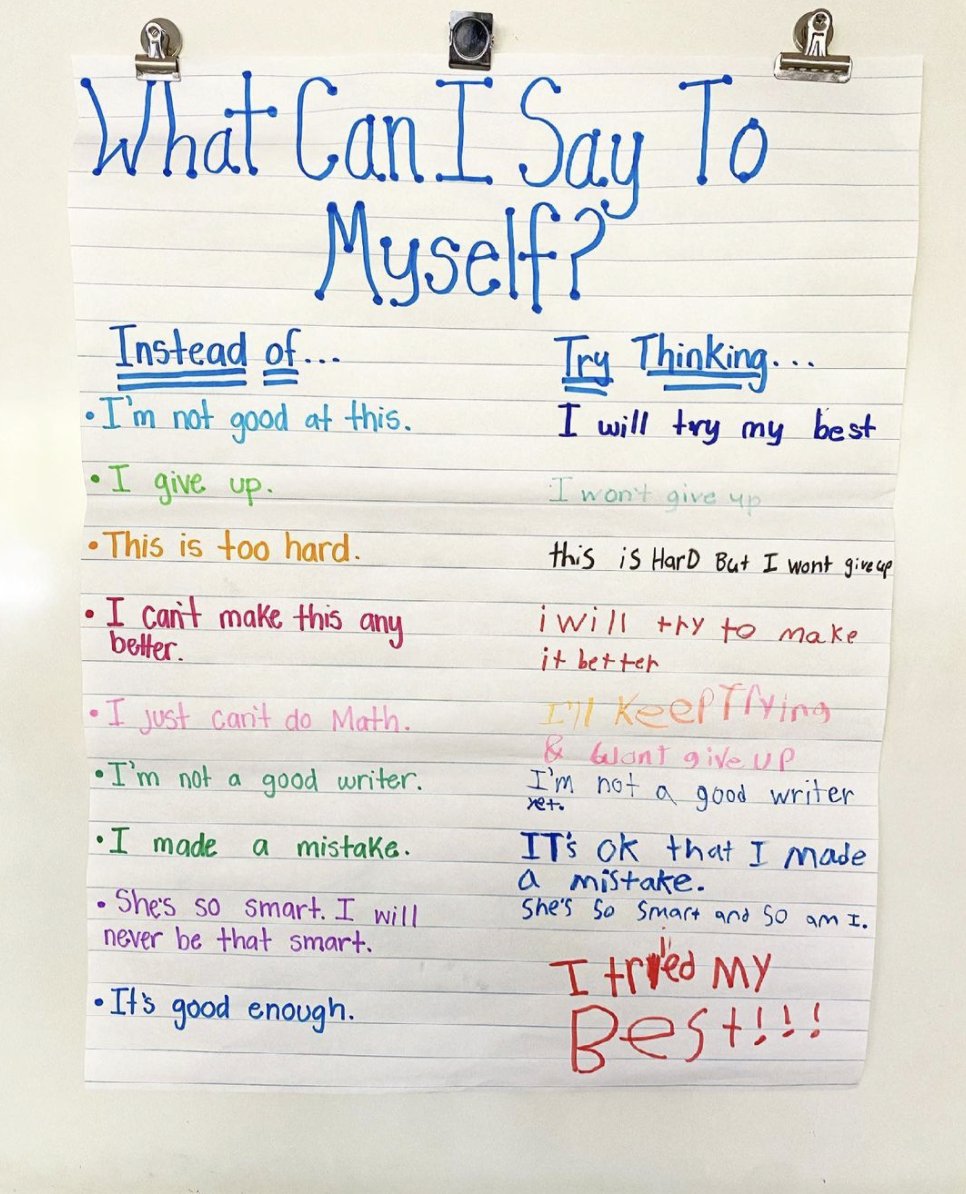 What Can I Say To
Myself?
Instead of...
Try Thinking...
•I'm not good at this.
I will try my best
•I give up.
I won't give up
•This is too hard.
this is HarD But I wont give up
•I can't make this any
better.
i will try to make
it better
•I just can't do Math.
I'll KeepTrying
& Wont give UP
•I'm not a good writer.
I'm not a good writer
yet.
•I made a mistake.
IT's ok that I made
a mistake.
•She's so smart. I will
never be that smart.
She's So Smart and So am I.
•It's good enough.
I tried MY
Best!!!